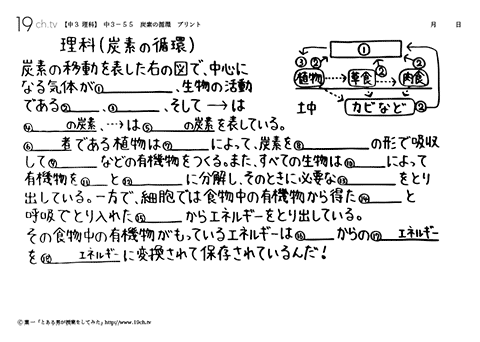 19ch.tv 【中3 理科】 中3-55 炭素の循環 プリント 月 日
理科(炭素の循環)
炭素の移動を表した右の図で、中心に
なる気体が① 、生物の活動
である② 、③ 、そして→は
④ の炭素、⇢は⑤ の炭素を表している。
⑥ 者である植物は⑦ によって、炭素を⑧ の形で吸収
して⑨ などの有機物をつくる。また、すべての生物は⑩ によって
有機物を⑪ と⑫ に分解し、そのときに必要な⑬ をとり
出している。一方で、細胞では食物中の有機物から得た⑭ と
呼吸でとり入れた⑮ からエネルギーをとり出している。
その食物中の有機物がもっているエネルギーは⑯ からの⑰ エネルギー
を⑱ エネルギーに変換されて保存されているんだ!
①
③ ② ② ②
植物 草食 肉食
土中 カビなど ②
© 葉一「とある男が授業をしてみた」http://www.19ch.tv